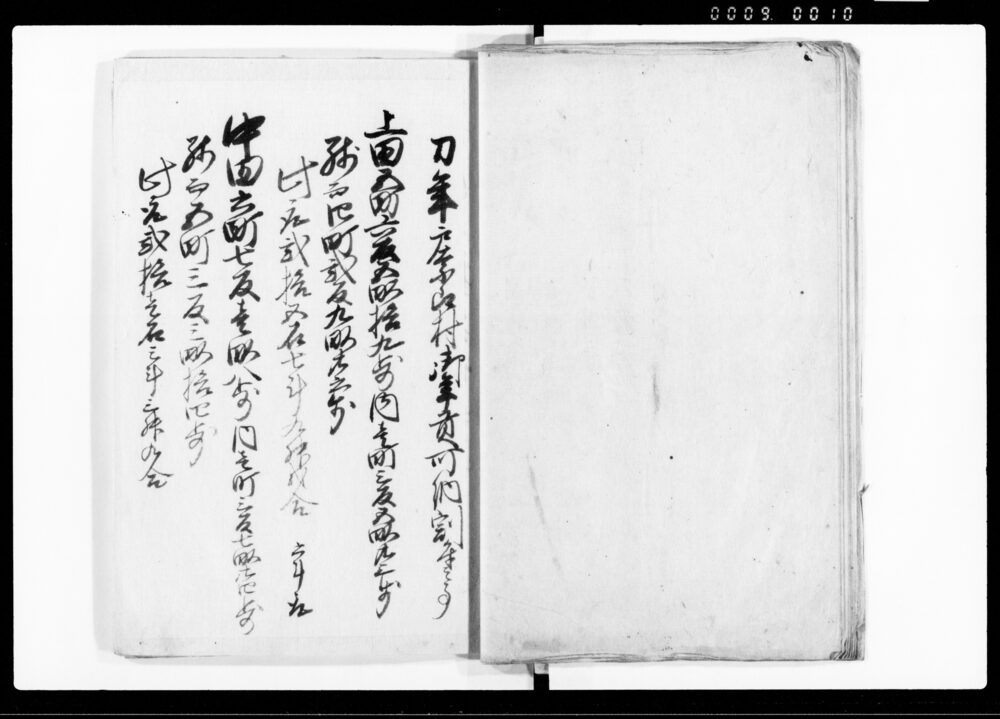 0009 0010
年 村御年貢可納割付之事
上田五町六反五畝拾九歩 内壱町三反五畝廿三歩
残而四町弐反九畝廿六歩
此取弐拾五石七斗九升弐合 六斗取
中田六町七反壱畝八歩 内壱町三反七畝廿四歩
残而五町三反三畝拾四歩
此取弐拾壱石三斗三升九合